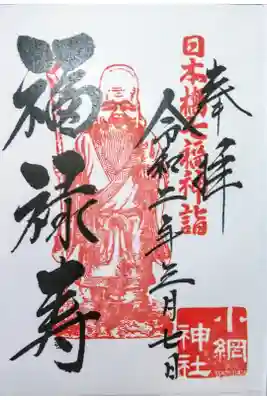 奉拝
日本橋七福神詣
令和二年三月七日
福禄寿
小網
神社